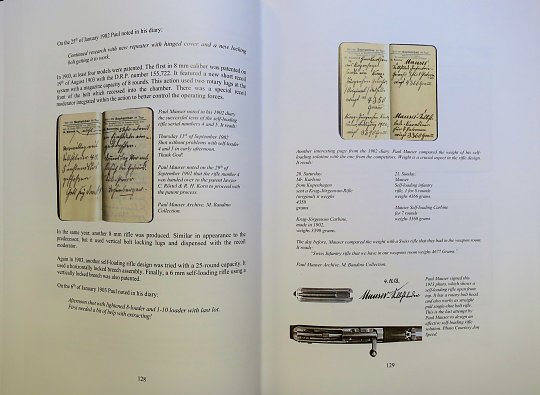 On the 25th of January 1902 Paul noted in his diary:
Continued research with new repeater with hinged cover and a new locking
bolt getting it to work.
In 1903, at least four models were patented. The first in 8 mm caliber was patented on
19th of August 1903 with the D.R.P. number 155,722. It featured a new short recoil
system with a magazine capacity of 8 rounds. This action used two rotary lugs at the
front of the bolt which recessed into the chamber. There was a special recoil
moderator integrated within the action to better control the operating forces.
Paul Mauser noted in his 1902 diary
the successful tests of the self-loading
rifle serial numbers 4 and 5. It reads:
Thursday 13th of September 1902
Shot without problems with self-loader
4 and 5 in early afternoon.
Thank God!
Paul Mauser noted on the 29th of
September 1902 that the rifle number 4
was handed over to the patent lawyer
C. Röstel & R. H. Korn to proceed with
the patent process.
Paul Mauser Archive. M. Baudino
Collection.
In the same year, another 8 mm rifle was produced. Similar in appearance to the
predecessor, but it used vertical bolt locking lugs and dispensed with the recoil
moderator.
Again in 1903, another self-loading rifle design was tried with a 25-round capacity. It
used a horizontally locked breech assembly. Finally, a 6 mm self-loading rifle using a
vertically locked breech was also patented.
On the 6th of January 1905 Paul noted in his diary:
Afternoon shot with lightened 8-loader and 1-10 loader with last lot.
First needed a bit of help with extracting!
128
Another interesting page from the 1902 diary. Paul Mauser compared the weight of his self-
loading solution with the one from the competitors. Weight is a crucial aspect in the rifle design.
It reads:
20. Saturday.
Mr. Karlson
from Kopenhagen
sent a Krag-Jörgenson-Rifle
(original) it weighs
4350
grams
Krag-Jörgenson Carbine,
made in 1902:
weighs 3390 grams.
21. Sunday.
Mauser
Self-loading infantry
rifle, 1 for 8 rounds
weighs 4366 grams
Mauser Self-loading Carbine
for 7 rounds
weighs 3360 grams.
The day before, Mauser compared the weight with a Swiss rifle that they had in the weapon room.
It reads:
"Swiss Infantry rifle that we have in our weapon room weighs 4677 Grams."
Paul Mauser Archive. M. Baudino Collection.
Paul Mauser signed this
1913 photo, which shows a
self-loading rifle open from
top. It has a rotary bolt head
and also works as straight
pull single-shot bolt rifle.
This is the last attempt by
Paul Mauser to design an
effective self-loading rifle
solution. Photo Courtesy Jon
Speed.
129